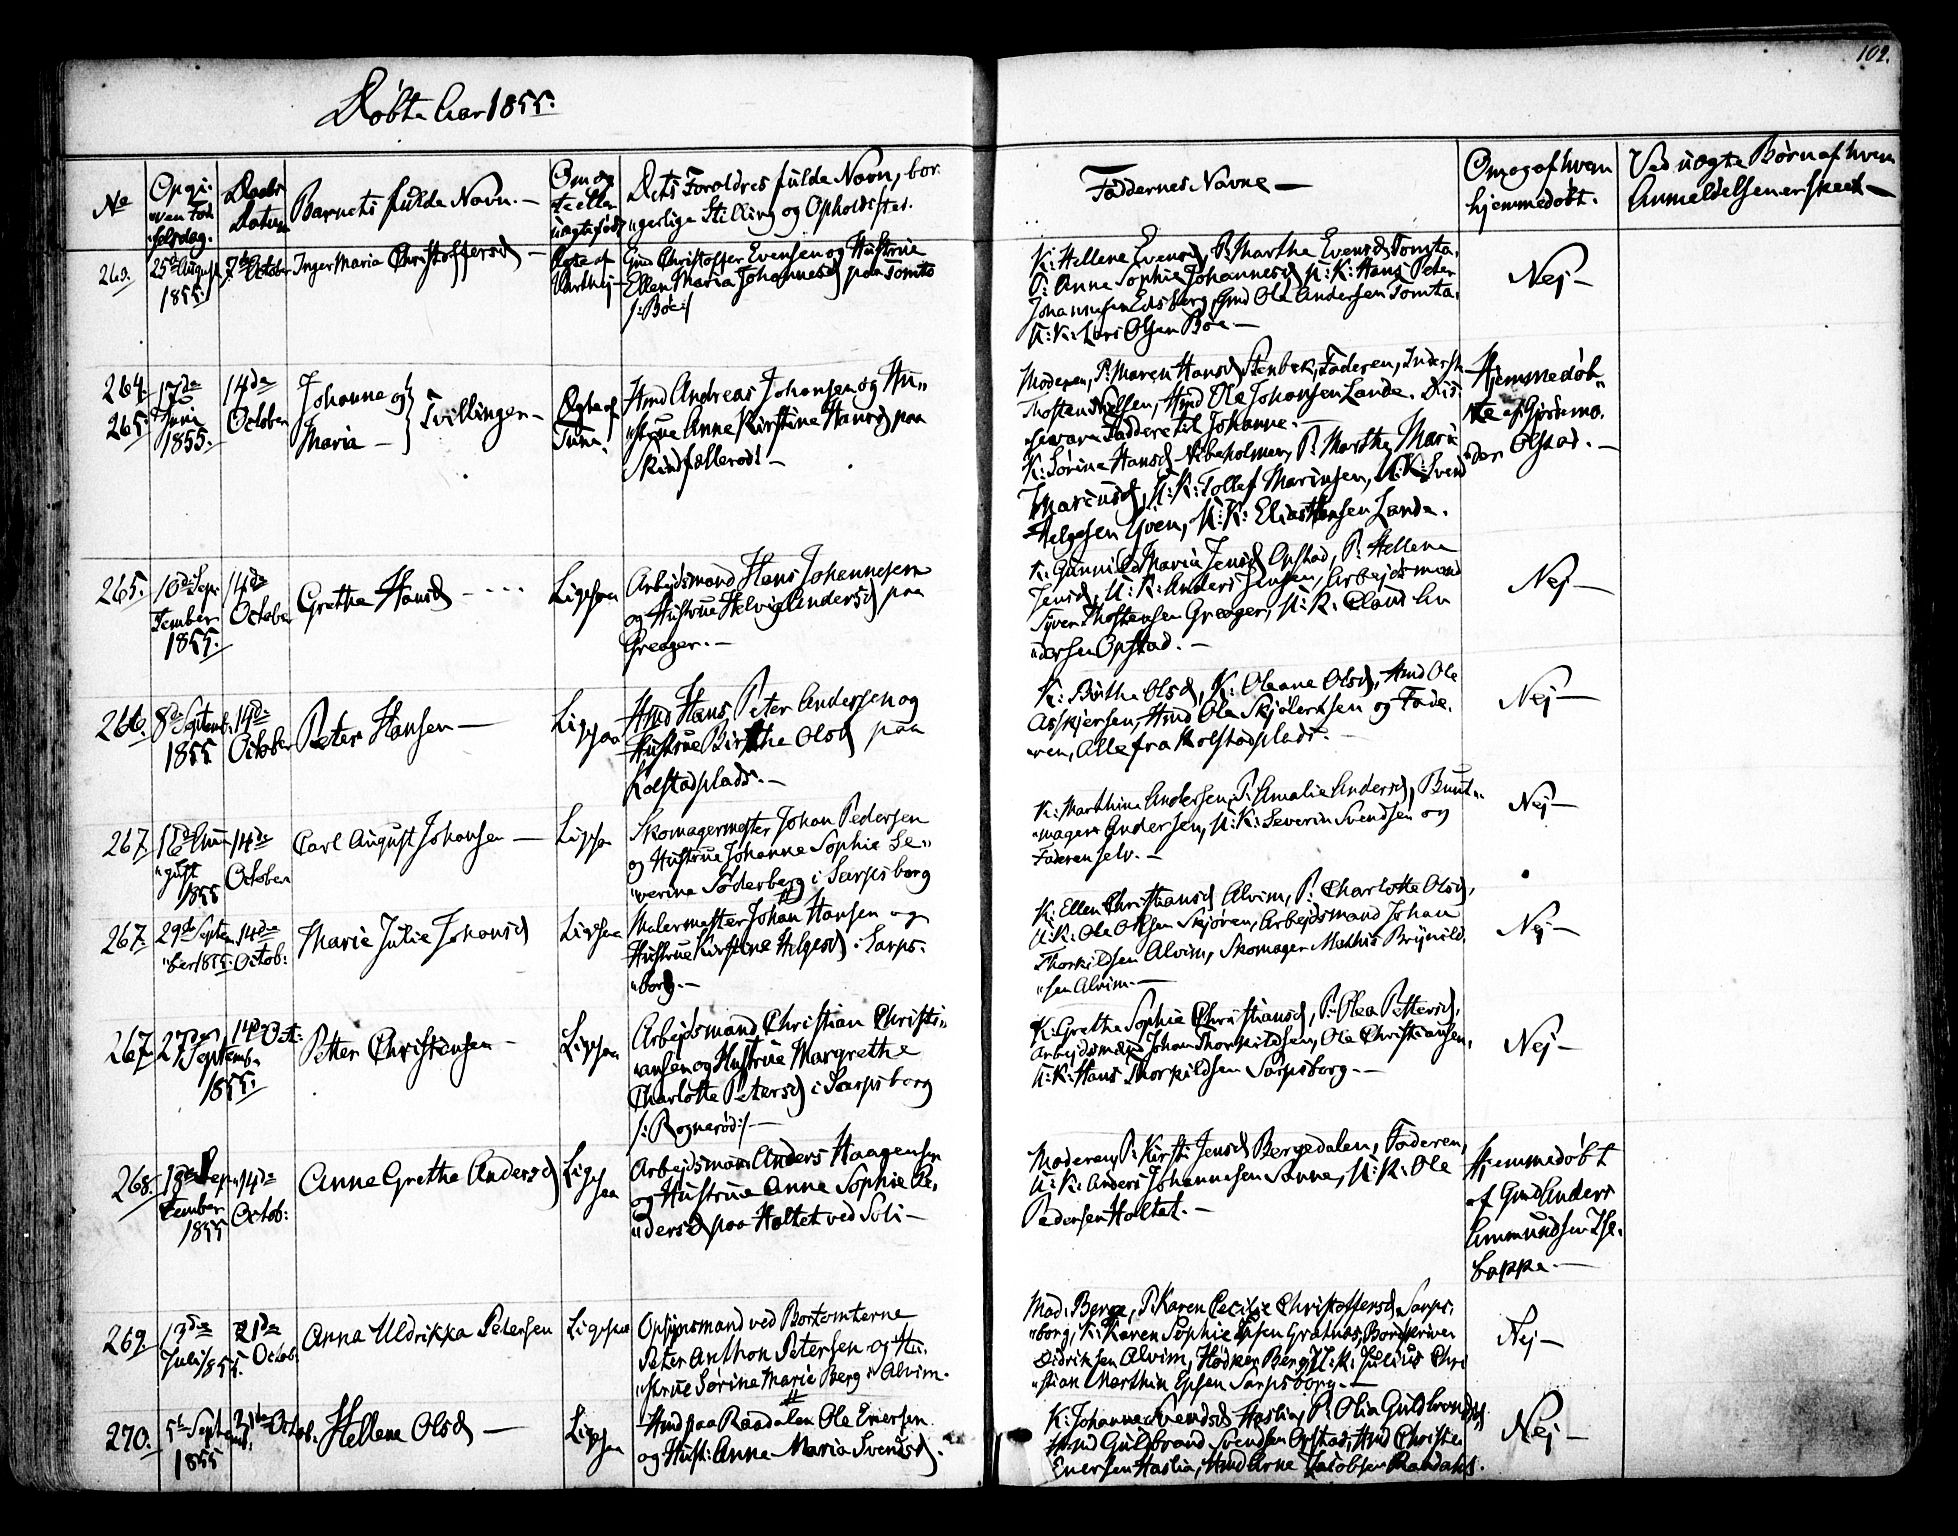 102.
Døbte Aar 1855.
No
Opgi-
"ven Fød
"selsdag.
Daabs
Datum
Barnets fulde Navn. —
Om æg
te eller
uægtefødt
Dets Foræld­res fulde Navn, bor
"gerlige Stilling og Opholdsted.
Faddernes Navne —
Om og af hvem
hjemmedøbt.
Ved uægte Børn af hvem
Anmeldelsen er skeet —
263.
25de August
1855
7de October
Inger Maria Christoffersd —
Ægte af
Gmd Christoffer Evensen og Hustrue
Ellen Maria Johannesd paa Tomta
/: Böe :/
K: Hellene Evensd, P: Marthe Evensd Tomta,
P: Anna Sophia Johannesd, U: K: Hans Peter
Johannesen Edsberg, Gmd Ole Andersen Tomta,
U: K: Lars Olsen Böe —
Nej —
264.
265.
17de
Juni
1855.
14de
October
Johanne og
Maria —
Tvillinger —
Ægte af
Hmd Andreas Johansen og Hu"
"strue Anne Kirstine Hansd paa
Moderen, P: Maren Hansd Stenbek, Faderen, Inderst
Thosten Nielsen, Hmd Ole Johansen Lande. Dis"
"se vare Faddere til Johanne. —
K: Sörine Hansd, P: Marthe Marie
Marcusd, U: K: Tollef Marinsen, U: K: Svend
Helgesen Gven, U: K: Elias Hansen Lande.
Hjemmedøb"
"te af Gjörmo.
"der Olstad. —
265.
10de Sep-
tember
1855.
14de
October
Grethe Hansd - - - -
Ligesaa
Arbejdsmand Hans Johannesen
og Hustrue Helvig Andersd paa
Greager. —
K: Gunnild Maria Jensd Opstad, P: Hellene
Jensd, U: K: Anders Jensen, Arbejdsmand
Syver Thostensen Greager, U: K: Claus An
"dersen Opstad. —
Nej —
266.
8de Septemb.
1855
14de
October
Peter Hansen —
Ligesaa
Hmd Hans Peter Andersen og
Hustrue Birthe Olsd paa
Kolstadplads. —
K: Birthe Olsd, K: Oleane Olsd, Hmd Ole
Asskjersen, Hmd Ole Skjölersen og Fade.
"ren, Alle fra Kolstadplads. —
Nej —
267.
18de Au-
"gust
1855
14de
October
Carl August Johansen —
Ligesaa
Skomagermester Johan Pedersen
og Hustrue Johanne Sophie Se"
"verine Söderberg i Sarpsborg
K: Marthine Andersen, P: Amalie Andersd, Bunt"
"mager Andersen, U: K: Severin Svendsen og
Faderen selv. —
Nej —
267.
29de Septem
"ber 1855
14de
Octob:
Marie Julie Johansd
Ligesaa
Malermester Johan Hansen og
Hustrue Kirstine Helgesd i Sarps-
"borg. —
K: Ellen Christiansd Alvim, P: Charlotte Olsd,
U: K: Ole Olsen Skjören, Arbejdsmand Johan
Thorkildsen Alvim, Skomager Mathis Brynild
"sen Alvim. —
Nej —
267.
27de
Septemb.
1855.
14de Oct:
Petter Christensen —
Ligesaa
Arbejdsmand Christian Christi"
"ansen og Hustrue Margrethe
Charlotte Petersd i Sarpsborg
/: Rognerød :/ —
K: Grethe Sophie Christiansd, P: Olea Pettersd,
Arbejdsmand Johan Thorkildsen, Ole Christiansen,
U: K: Hans Thorkildsen Sarpsborg. —
Nej —
268.
18de Sep-
tember
1855
14de
Octob:
Anne Grethe Andersd
Ligesaa
Arbejdsmand Anders Haagensen
og Hustrue Anne Sophie An"
"dersd paa Holtet ved Soli —
Moderen, P: Kirsti Jensd Bergedalen, Faderen,
U: K: Anders Johannesen Sanne, U: K: Ole
Pedersen Holtet. —
Hjemmedøbt
af Gmd Anders
Ammundsen Ise.
bakke. —
269.
13de
Juli 1855.
21de
Octob.
Anna Uldrikka Petersen
Ligesaa
Opsynsmand ved Bortomterne
Peter Anthon Petersen og Hu-
"strue Sörine Marie Berg i Alvim.
Mad: Berge, P: Karen Cecilie Christoffersd Sarps-
"borg, K: Karen Sophie Epsen Gratnæs, Bordskriver
Didriksen Alvim, Hödker Berg, U: K: Julius Chri
"stian Marthin Epsen Sarpsborg. —
Nej —
270.
5te Sept
1855
21de Octob.
Hellene Olsd —
Ligesaa
Hmd paa Raadalen Ole Eversen
og Hust: Anne Maria Svendsd.
K: Johanne Svendsd Haslia, P: Olia Guldbrandsd,
Hmd Guldbrand Svendsen Opstad, Hmd Christen
Eversen Haslia, Hmd Arne Jacobsen Raadalen.
Nej —